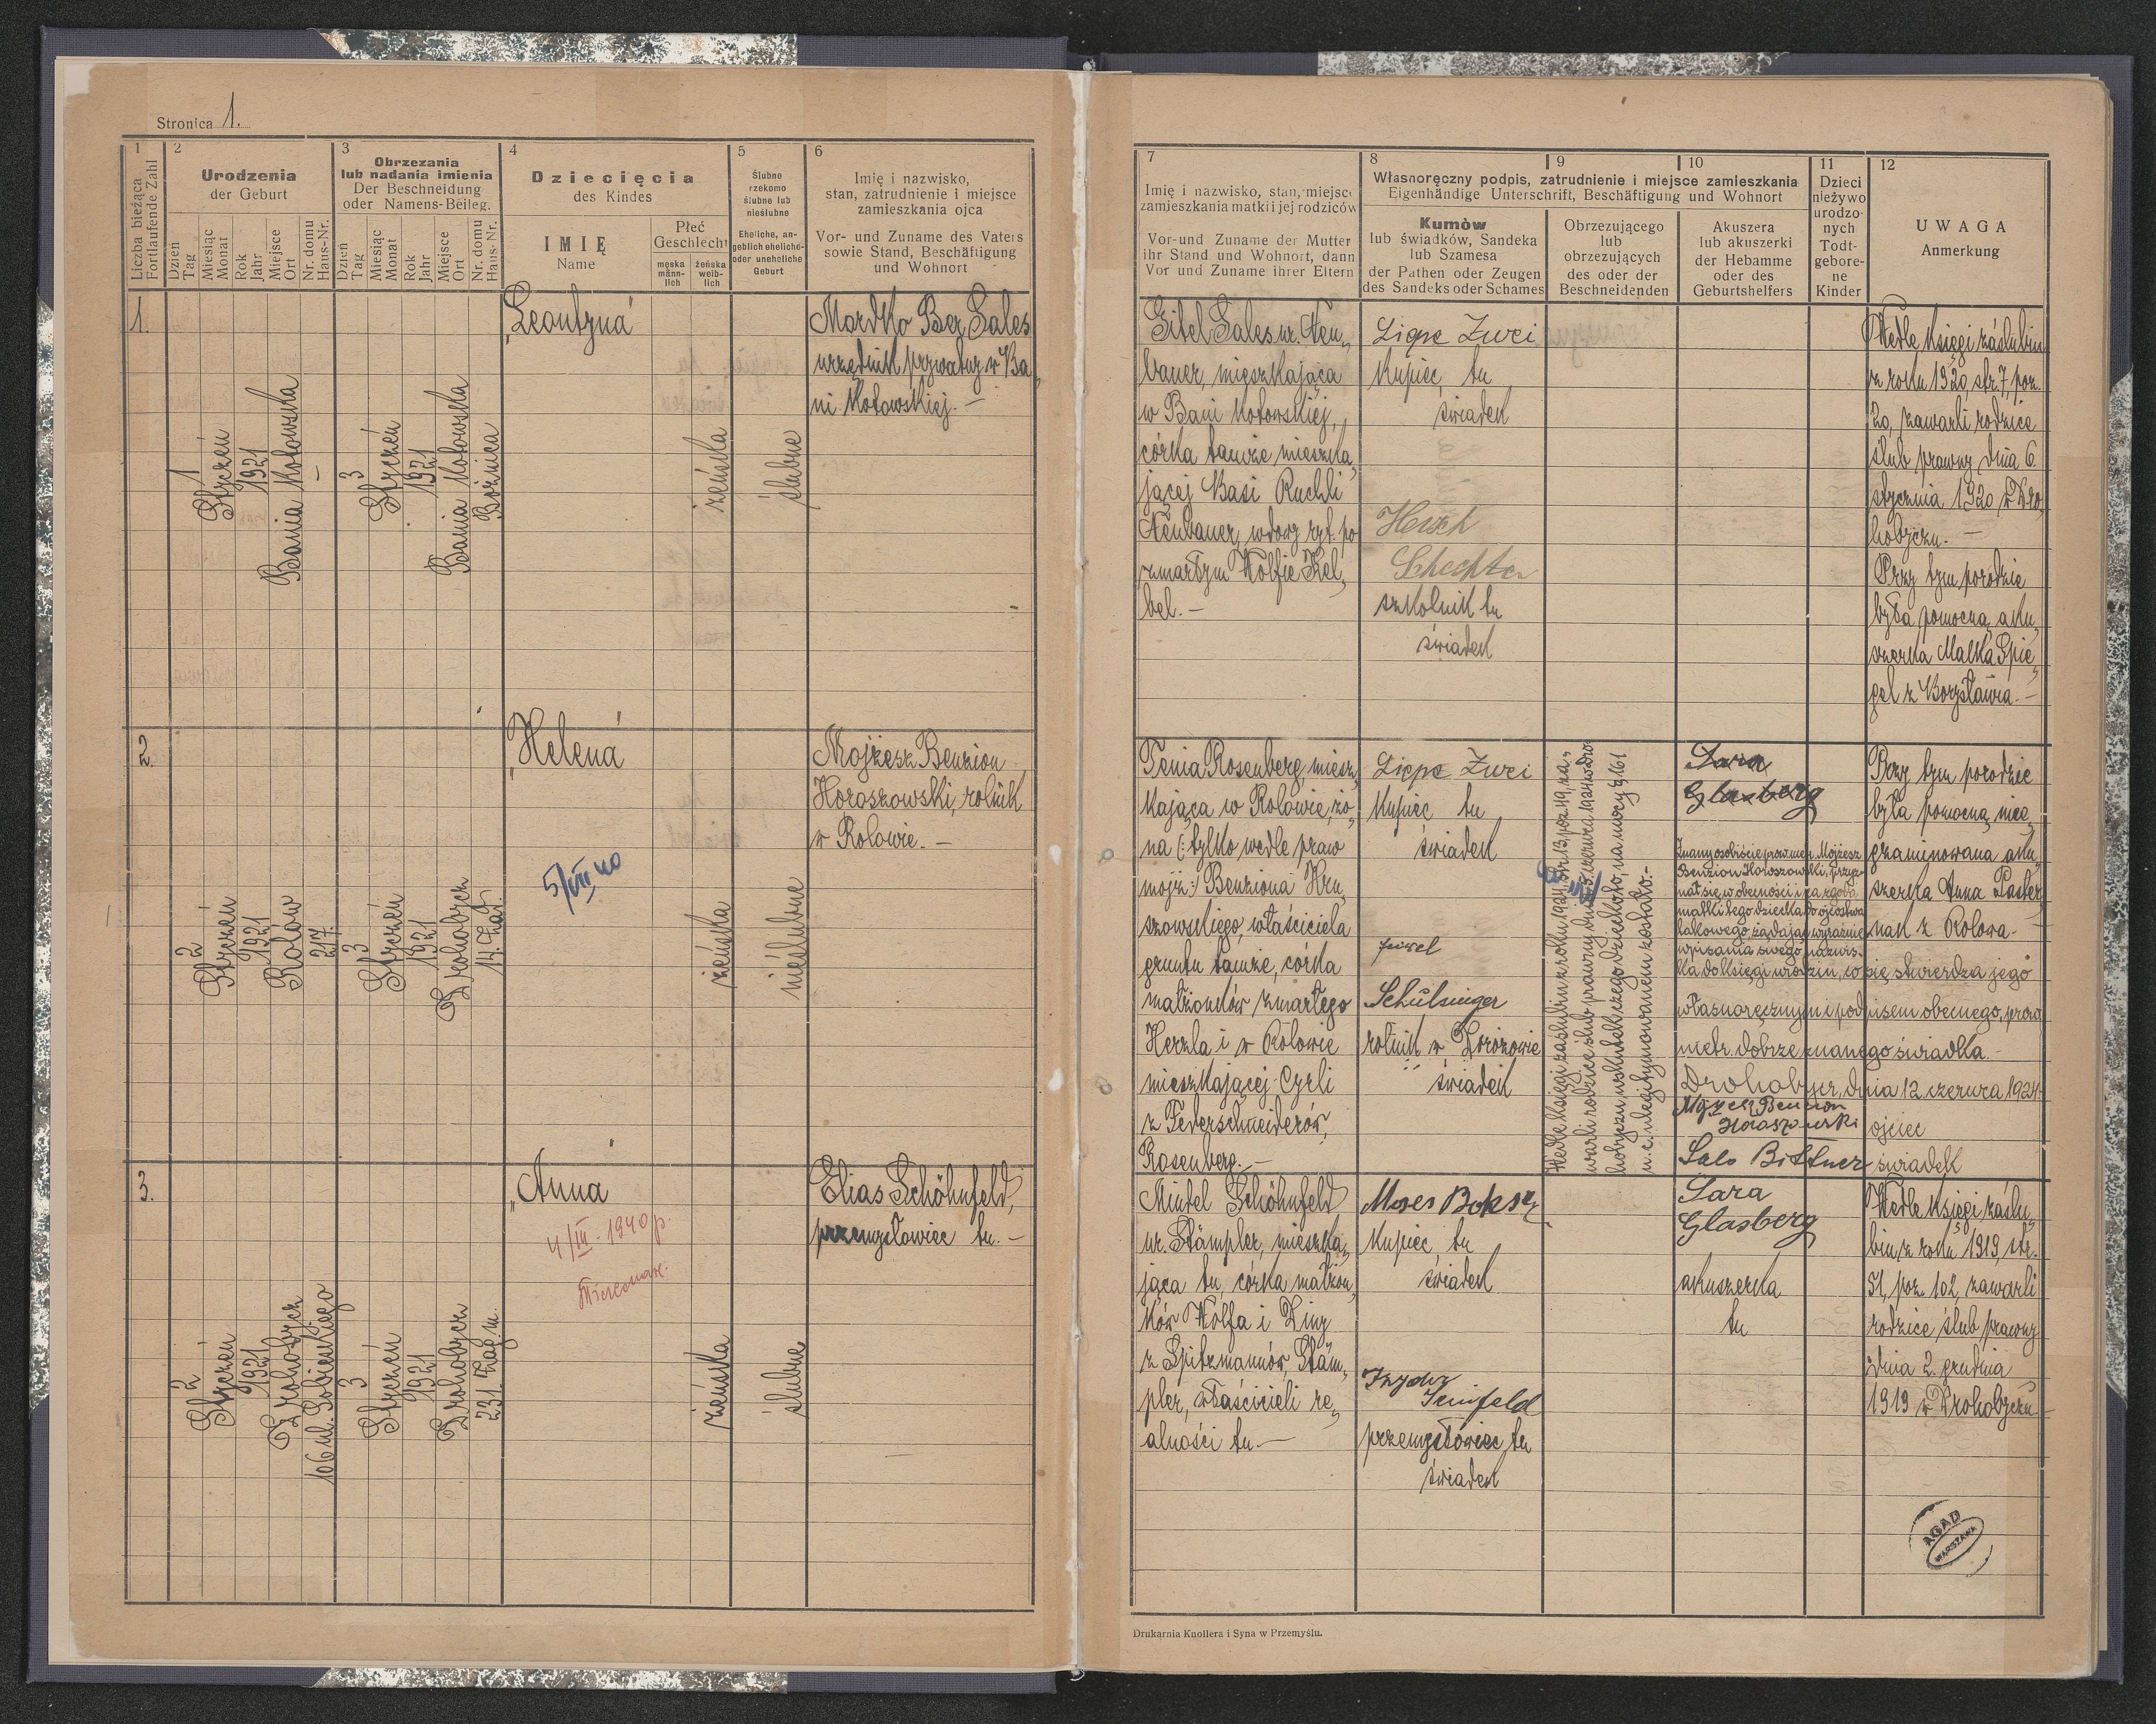 Stronica 1.
1
Liczba bieżąca
Fortlaufende Zahl
2
Urodzenia
der Geburt
Dzień
Tag
Miesiąc
Monat
Rok
Jahr
Miejsce
Ort
Nr. domu
Haus-Nr.
3
Obrzezania
lub nadania imienia
Der Beschneidung
oder Namens-Beileg.
Dzień
Tag
Miesiąc
Monat
Rok
Jahr
Miejsce
Ort
Nr. domu
Haus-Nr.
4
Dziecięcia
des Kindes
IMIĘ
Name
Płeć
Geschlecht
męska
männ-
lich
żeńska
weib-
lich
5
Ślubne
rzekomo
ślubne lub
nieślubne
Eheliche, an-
geblich eheliche-
oder uneheliche
Geburt
6
Imię i nazwisko,
stan, zatrudnienie i miejsce
zamieszkania ojca
Vor- und Zuname des Vaters
sowie Stand, Beschäftigung
und Wohnort
1.
1
Styczeń
1921
Bania Kotowska
3
Styczeń
1921
Bania Kotowska
Bożnica
„Leontyna"
żeńska
ślubne
Mordko Ber Sales
urzędnik prywatny w Ba„
ni Kotowskiej. —
2.
2
Styczeń
1921
Rolów
217.
3
Styczeń
1921
Drohobycz
14. Zat.
„Helena"
5/VII 40
żeńska
nieślubne
Mojżesz Benzion
Horoszowski, rolnik
w Rolowie. —
3.
2
Styczeń
1921
Drohobycz
106 ul. Sobieskiego
3
Styczeń
1921
Drohobycz
231. Zag. m.
„Anna"
4/III. 1940 p.
żeńska
ślubne
Elias Schöhnfeld,
przemysłowiec tu. —
7
Imię i nazwisko, stan, miejsce
zamieszkania matki i jej rodziców
Vor-und Zuname der Mutter
ihr Stand und Wohnort, dann
Vor und Zuname ihrer Eltern
8
9
10
Własnoręczny podpis, zatrudnienie i miejsce zamieszkania
Eigenhändige Unterschrift, Beschäftigung und Wohnort
Kumów
lub świadków, Sandeka
lub Szamesa
der Pathen oder Zeugen
des Sandeks oder Schames
Obrzezującego
lub
obrzezujących
des oder der
Beschneidenden
Akuszera
lub akuszerki
der Hebamme
oder des
Geburtshelfers
11
Dzieci
nieżywo
urodzo-
nych
Todt-
gebore-
ne
Kinder
12
UWAGA
Anmerkung
Gitel Sales ur. Neu„
bauer, mieszkająca
w Bani Kotowskiej,
córka tamże mieszka„
jącej Basi Ruchli
Neubauer, wdowy ryt. po
zmarłym Wolfie Hel„
bel. —
Liepe Zwei
Kupiec, tu
świadek
Hersch
Schechter
szkolnik tu
świadek
Wedle Księgi zaślubin
z roku 1920, str. 7, poz.
20, zawarli rodzice
ślub prawny dnia 6.
stycznia 1920 w Dro„
hobyczu. —
Przy tym porodzie
była pomocną aku„
szerka Malka Spie„
gel z Borysławia. —
Tenia Rosenberg, miesz„
kająca w Rolowie, żo„
na (: tylko wedle praw
mojż :) Benziona Hru„
szowskiego, właściciela
gruntu tamże, córka
małżonków zmarłego
Herzla i w Rolowie
mieszkającej Cyrli
z Federschneiderów,
Rosenberg. —
Liepe Zwei
Kupiec tu
świadek
Schulsinger
rolnik w Dorożowie
świadek
Wedle Księgi zaślubin z roku 1924, str. 13, poz. 49, za„
warli rodzice ślub prawny dnia 5. czerwca 1924 w Dro„
hobyczu wskutek czego dziecko to, na mocy § 161
u. c. ulegitymowanem zostało. —
Sara
Glasberg
Znany osobiście prow. metr. Mojżesz
Benzion Horoszowski, przyz„
nał się w obecności i za zgodą
matki tego dziecka do ojcostwa
takowego, żądając wyraźnie
wpisania swego nazwis„
ka do księgi urodzin, co się stwierdza jego
własnoręcznym i podpisem obecnego, prow.
metr. dobrze znanego świadka. —
Drohobycz, dnia 12 czerwca 1924.
Mojżesz Benzion
Horoszowski ojciec
Salo Bittner świadek
Przy tym porodzie
była pomocną nie„
gzaminowana aku„
szerka Anna Paster„
nak z Rolowa. —
Mindel Schöhnfeld
ur. Stämpler, mieszka„
jąca tu, córka małżon„
ków Wolfa i Ziny
z Spitzmannów, Stäm„
pler, właścicieli re„
alności tu. —
Moses Boksz
Kupiec, tu
świadek
przemysłowiec tu
świadek
Sara
Glasberg
akuszerka
tu
Wedle Księgi zaślu„
bin z roku 1919, str.
51, poz. 102, zawarli
rodzice ślub prawny
dnia 2. grudnia
1919 w Drohobyczu. —
AGAD
WARSZAWA
Drukarnia Knollera i Syna w Przemyślu.